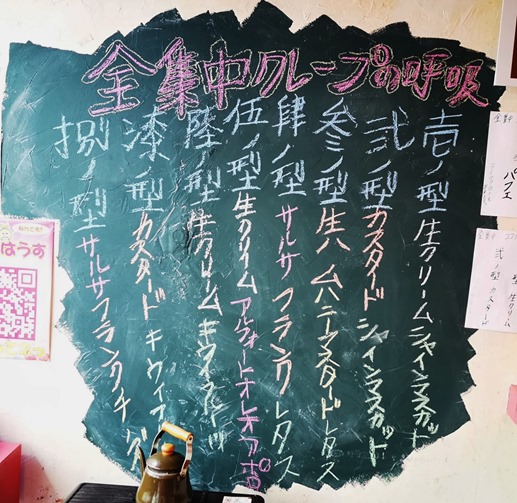 全集中クレープの呼吸
壱ノ型 生クリームシャインマスカット
弐ノ型 カスタードシャインマスカット
参ノ型 生ハムハニーマスタードレタス
肆ノ型 サルサフランクレタス
伍ノ型 生クリームアルフォートオレオアポロ
陸ノ型 生クリームキウイ
漆ノ型 カスタードキウイ
捌ノ型 サルサフランクチーズ
はうす
パフェ
弐ノ型 カスタード
生クリーム